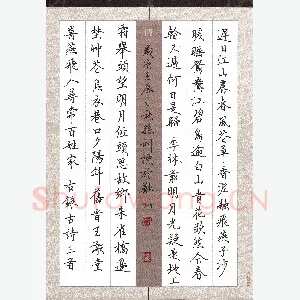 遲日江山麗春風花草香泥融飛燕子沙
暖睡鴛鴦江碧鳥逾白山青花欲然今春
看又過何日是歸年牀前明月光疑是地上
霜舉頭望明月低頭思故鄉朱雀橋邊
野草花烏衣巷口夕陽斜舊時王謝堂
前燕飛入尋常百姓家 右錄古詩三首